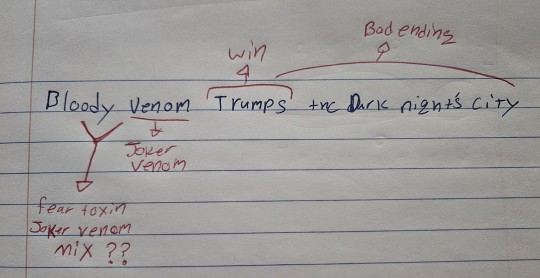 Bad ending
win
Bloody Venom Trumps the Dark night's city
Joker
venom
fear toxin
Joker venom
mix ??